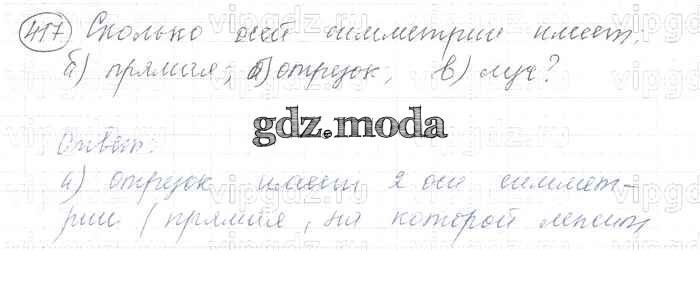 417 Сколько осей симметрии имеет:
а) прямая; б) отрезок; в) луч?
gdz.moda
Ответ:
а) отрезок имеет 2 оси симмет-
рии (прямая, на которой лежит